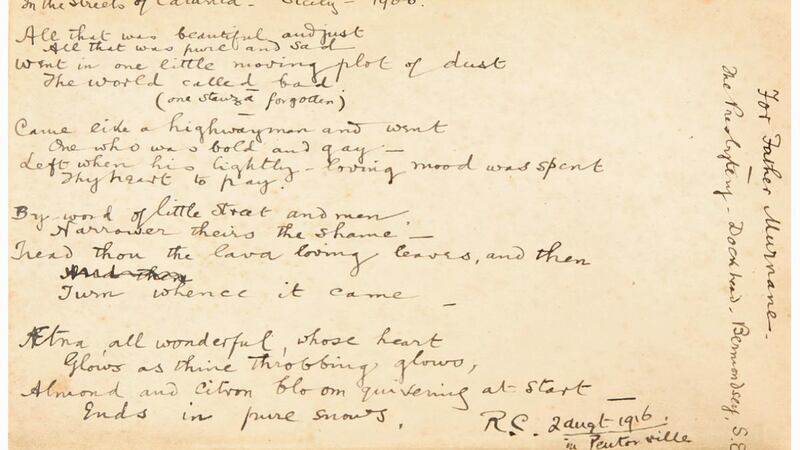 In the streets of Catania - Sicily - 1900.
All that was beautiful and just
All that was pure and sad
Went in one little moving plot of dust
The world called bad
(one stanza forgotten)
Came like a highwayman and went
One who was bold and gay -
Left when his lightly-loving mood was spent
Thy heart to pay.
By word of little street and men,
Narrower theirs the shame -
Tread thou the lava loving leaves, and then
And then
Turn whence it came -
Ætna, all wonderful, whose heart
Glows as thine throbbing glows,
Almond and citron bloom quivering at start -
Ends in pure snows.
R.C. 2 augt 1916.
in Pentonville
For Father Murnane -
The Presbytery - Dockhead - Bermondsey, S.E